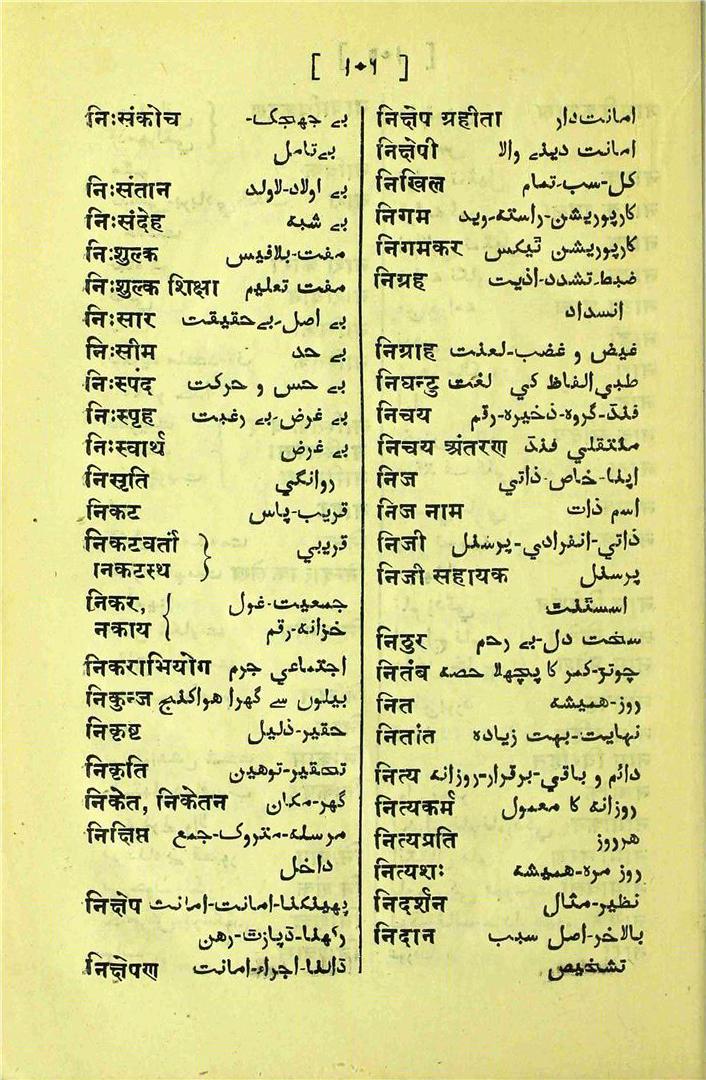 [ १०६ ]
नि:संकोच بے جھجک-
بے تامل
नि:संतान بے اولاد-لاولد
नि:संदेह بے شبہ
नि:शुल्क مفت-بلافیس
नि:शुल्क शिक्षा مفت تعلیم
नि:सार بے اصل-بے حقیقت
नि:सीम بے حد
नि:स्पंद بے حس و حرکت
नि:स्पृह بے غرض-بے رغبت
नि:स्वार्थ بے غرض
निसृति روانگی
निकट قریب-پاس
निकटवर्ती } قریبی
निकटस्थ
निकर, { جمعیت-غول
नकाय خزانہ-رقم
निकराभियोग اجتماعی جرم
निकुन्ज بیلوں سے گھرا ھواکنج
निकृष्ट حقیر-ذلیل
निकृति تحقیر-توھین
निकेत, निकेतन گھر-مکان
निक्षिप्त مرسلہ-متروک-جمع
داخل
निक्षेप پھینکنا-امانت-امانت
رکھنا-ڈپازٹ-رھن
निक्षेपण ڈالنا-اجراء-امانت
निक्षेप ग्रहीता امانت دار
निक्षेपी امانت دینے والا
निखिल کل-سب-تمام
निगम کارپوریشن-راستہ-وید
निगमकर کارپوریشن ٹیکس
निग्रह ضبط-تشدد-اذیت
انسداد
निग्राह غیض و غضب-لعنت
निघन्टु طبی الفاظ کی لغت
निचय فنڈ-گروہ-ذخیرہ-رقم
निचय अंतरण منتقلی فنڈ
निज اپنا-خاص-ذاتی
निज नाम اسم ذات
निजी ذاتی-انفرادی-پرسنل
निजी सहायक پرسنل
اسسٹنٹ
निठुर سخت دل-بے رحم
नितंब چوتڑ-کمر کا پچھلا حصہ
नित روز-ھمیشہ
नितांत نہایت-بہت زیادہ
नित्य دائم و باقی-برقرار-روزانہ
नित्यकर्म روزانہ کا معمول
नित्यप्रति ھرروز
नित्यश: روز مرہ-ھمیشہ
निदर्शन نظیر-مثال
निदान بالاخر-اصل سبب
تشخیص